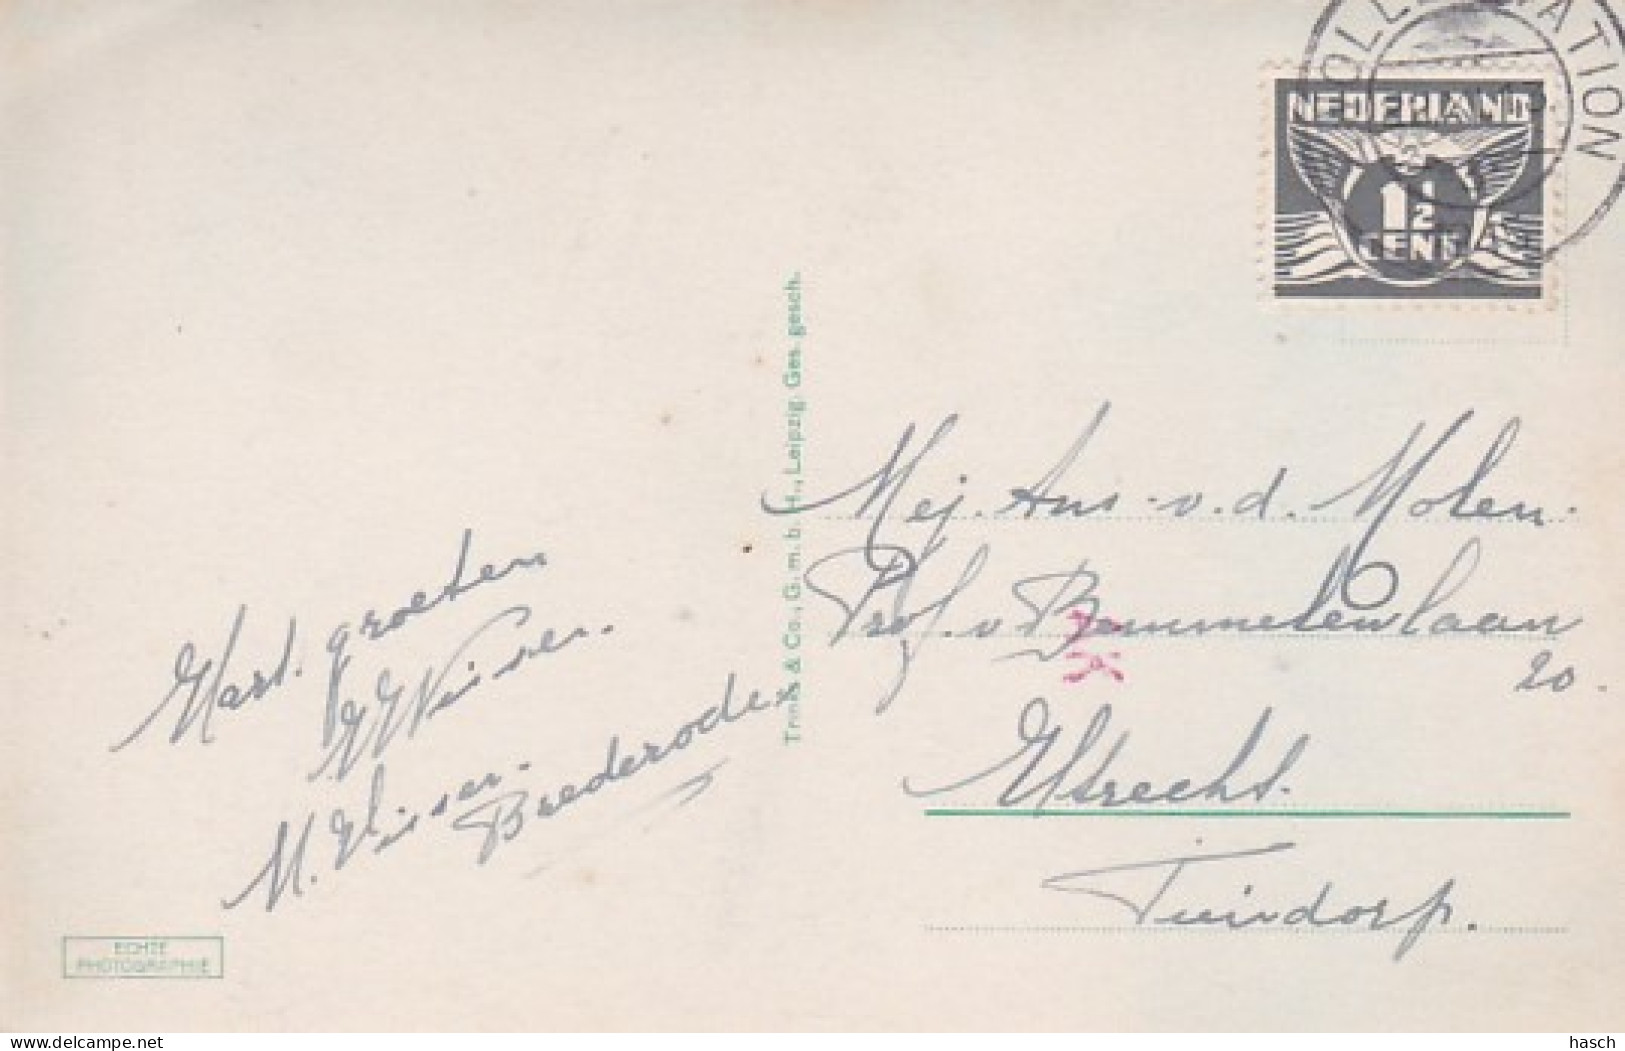 NEDERLAND
1½
CENT
Trinks & Co., G. m. b. H., Leipzig. Ges. gesch.
Hart. groeten
Visser.
M. Visser.
Brederodes
Mej. Ans v. d. Molen.
Prof. v Bemmelenlaan
20.
Utrecht.
Tuindorp.
ECHTE
PHOTOGRAPHIE
www.delcampe.net
hasch